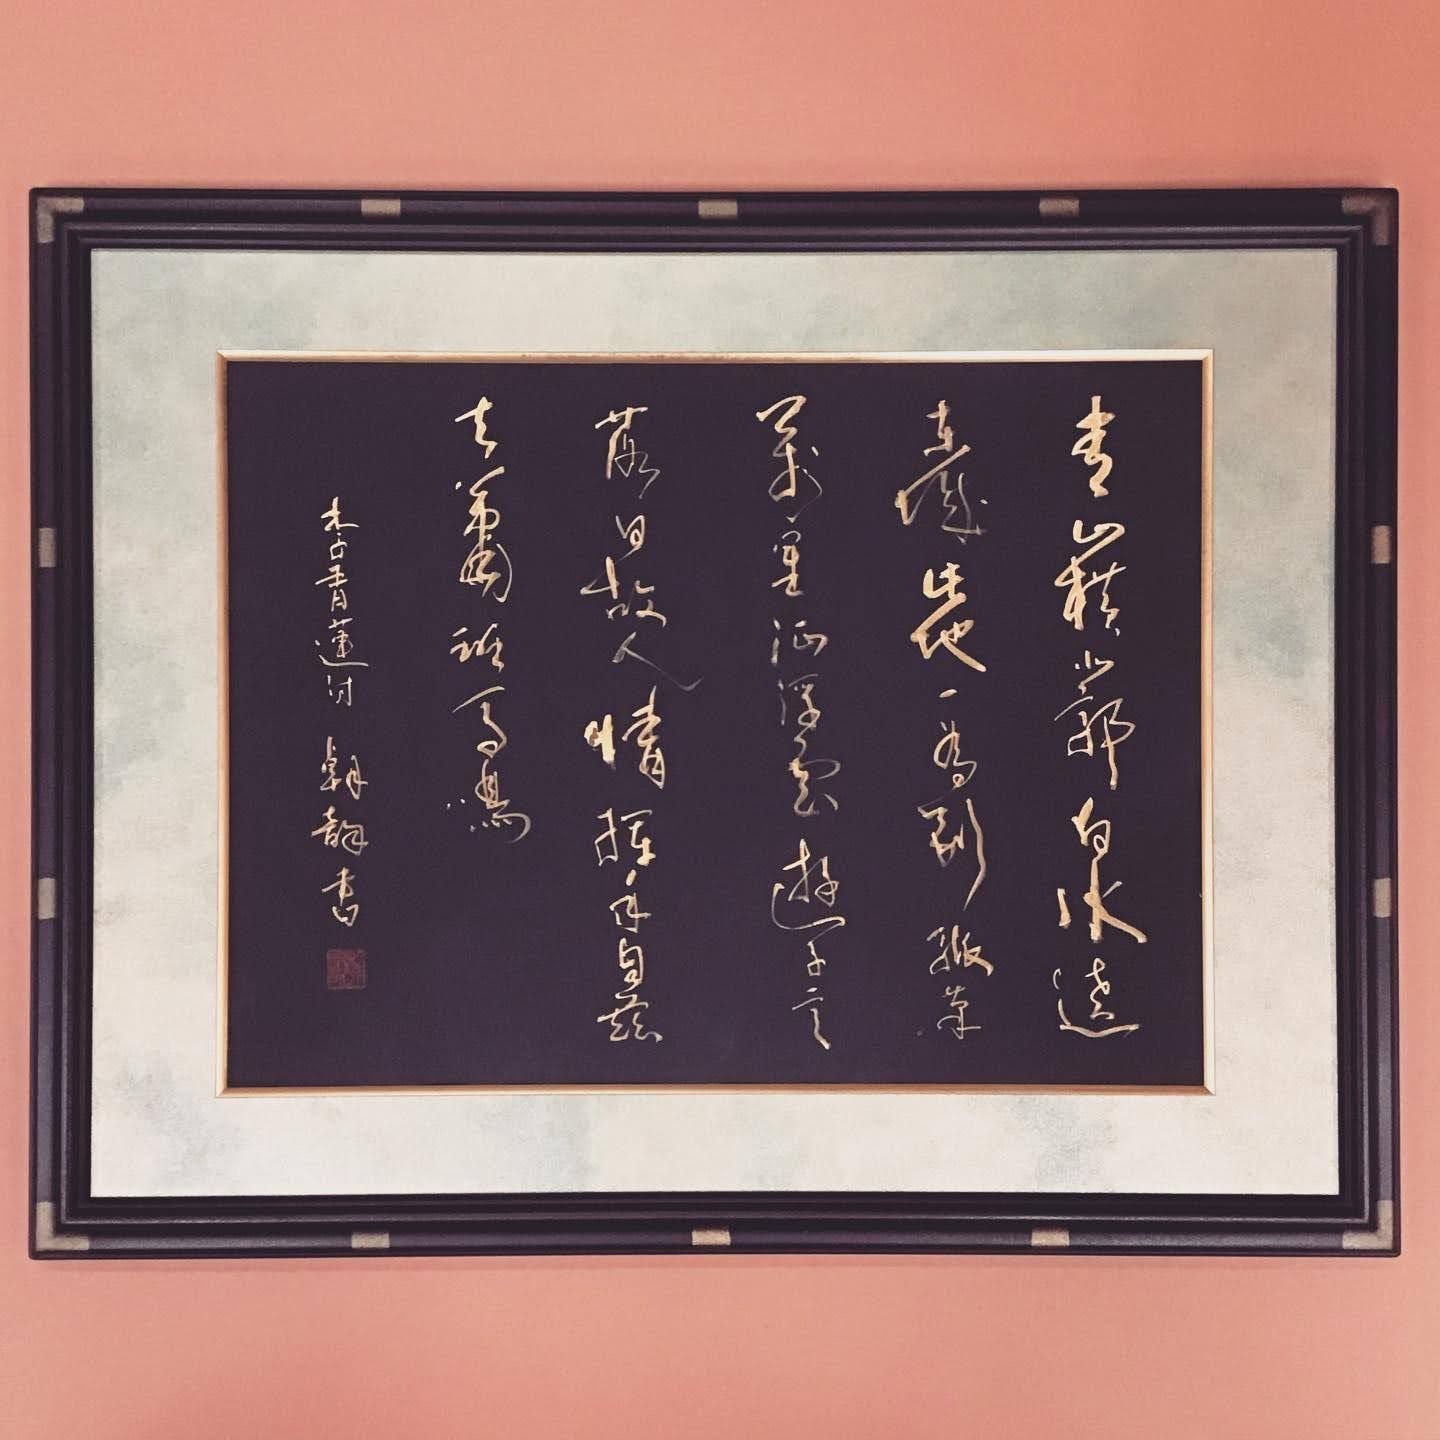 青山横北郭白水遶
東城此地一為別孤蓬
萬里征浮雲遊子意
落日故人情揮手自茲
去蕭々班馬鳴
李青蓮詩 書